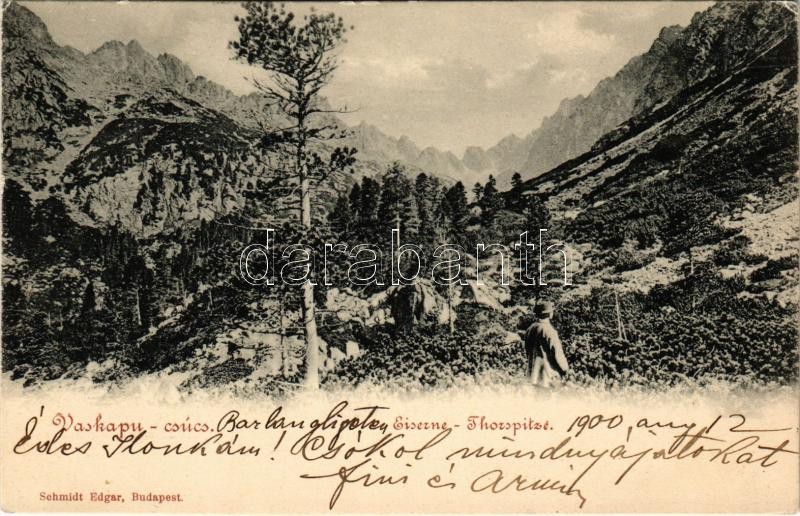 darabanth
Vaskapu - csúcs. Barlangliget Eiserne - Thorspitze. 1900, aug 12
Édes Ilonkám! Csókol mindnyájatokat
Fini és Armin
Schmidt Edgar, Budapest.